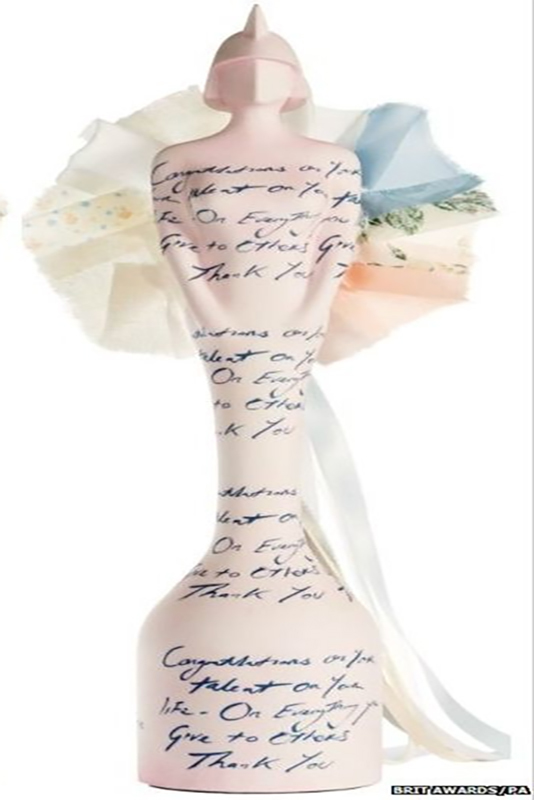 Congratulations on your
talent on You
life - On Everything you
Give to Others Give
Thank You
talent on Yo
On Every
to Others
k You
talent on
On Every
to Others
Thank You
Congratulations on your
talent on your
life - On Everything y
Give to Others
Thank You
BRIT AWARDS/PA